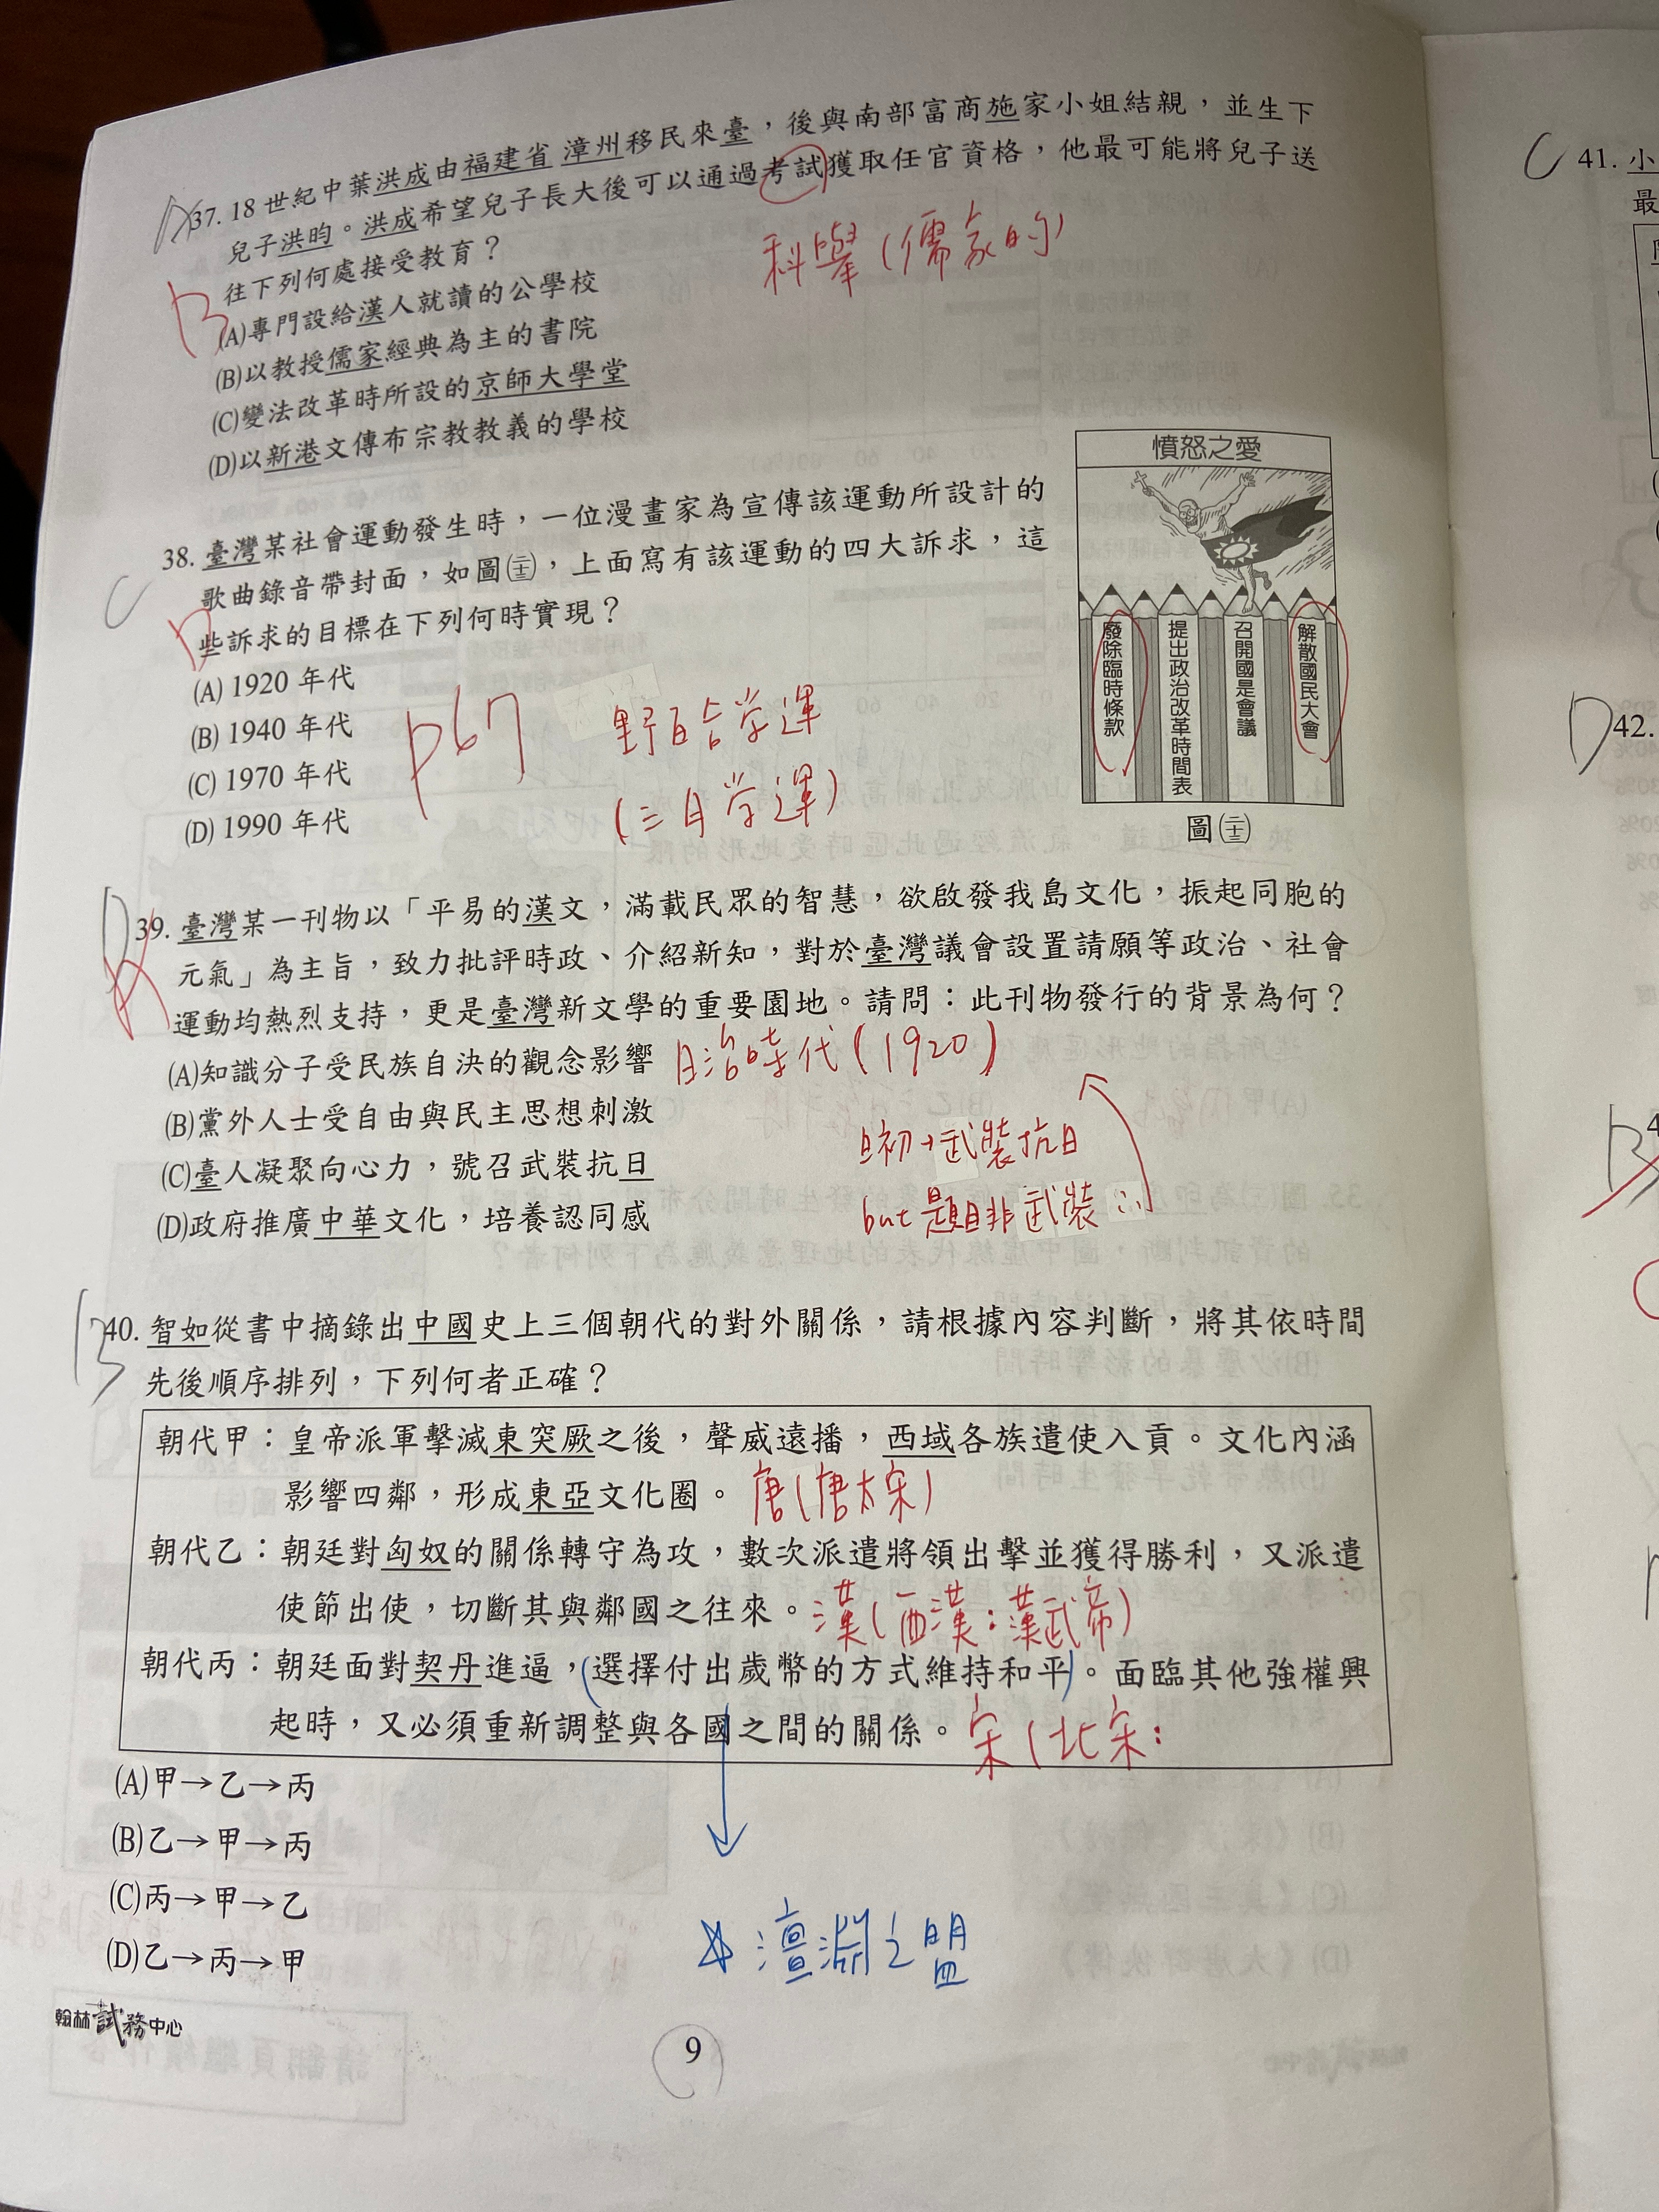 37. 18 世紀中葉洪成由福建省 漳州移民來臺，後與南部富商施家小姐結親，並生下
兒子洪昀。洪成希望兒子長大後可以通過考試獲取任官資格，他最可能將兒子送
往下列何處接受教育？
科舉(儒家的)
B
(A)專門設給漢人就讀的公學校
(B)以教授儒家經典為主的書院
(C)變法改革時所設的京師大學堂
(D)以新港文傳布宗教教義的學校
C
38. 臺灣某社會運動發生時，一位漫畫家為宣傳該運動所設計的
歌曲錄音帶封面，如圖(二十三)，上面寫有該運動的四大訴求，這
些訴求的目標在下列何時實現？
D
(A) 1920 年代
(B) 1940 年代
(C) 1970 年代
(D) 1990 年代
p67 野百合学運
(三月学運)
憤怒之愛
解散國民大會
召開國是會議
提出政治改革時間表
廢除臨時條款
圖(二十三)
39. 臺灣某一刊物以「平易的漢文，滿載民眾的智慧，欲啟發我島文化，振起同胞的
元氣」為主旨，致力批評時政、介紹新知，對於臺灣議會設置請願等政治、社會
運動均熱烈支持，更是臺灣新文學的重要園地。請問：此刊物發行的背景為何？
A
(A)知識分子受民族自決的觀念影響 日治時代(1920)
(B)黨外人士受自由與民主思想刺激
(C)臺人凝聚向心力，號召武裝抗日
(D)政府推廣中華文化，培養認同感
日初→武裝抗日
but 題目非武裝
B
40. 智如從書中摘錄出中國史上三個朝代的對外關係，請根據內容判斷，將其依時間
先後順序排列，下列何者正確？
朝代甲：皇帝派軍擊滅東突厥之後，聲威遠播，西域各族遣使入貢。文化內涵
影響四鄰，形成東亞文化圈。 唐(唐太宗)
朝代乙：朝廷對匈奴的關係轉守為攻，數次派遣將領出擊並獲得勝利，又派遣
使節出使，切斷其與鄰國之往來。 漢(西漢：漢武帝)
朝代丙：朝廷面對契丹進逼，(選擇付出歲幣的方式維持和平)。面臨其他強權興
起時，又必須重新調整與各國之間的關係。 宋(北宋：
(A)甲→乙→丙
(B)乙→甲→丙
(C)丙→甲→乙
(D)乙→丙→甲
澶淵之盟
翰林試務中心
9
C
41. 小
最
D
42.
B
4